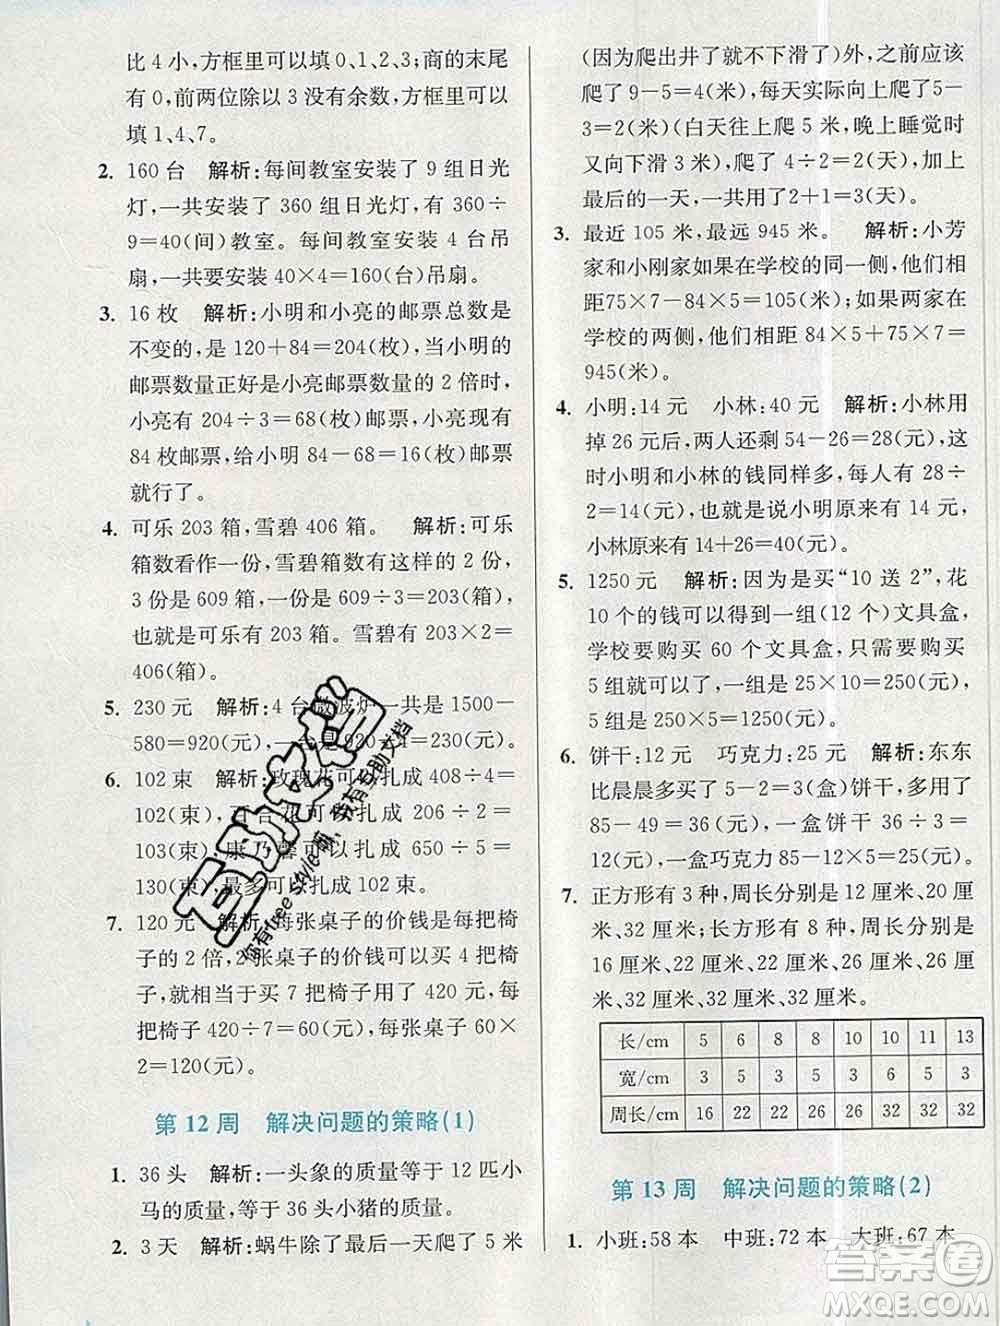 比 4 小,方框里可以填 0、1、2、3;商的末尾
有 0,前两位除以 3 没有余数,方框里可以
填 1、4、7。
2. 160 台 解析:每间教室安装了 9 组日光
灯,一共安装了 360 组日光灯,有 360÷
9=40(间)教室。每间教室安装 4 台吊
扇,一共要安装 40×4=160(台)吊扇。
3. 16 枚 解析:小明和小亮的邮票总数是
不变的,是 120+84=204(枚),当小明的
邮票数量正好是小亮邮票数量的 2 倍时,
小亮有 204÷3=68(枚)邮票,小亮现有
84 枚邮票,给小明 84-68=16(枚)邮票
就行了。
4. 可乐 203 箱,雪碧 406 箱。 解析:可乐
箱数看作一份,雪碧箱数有这样的 2 份,
3 份是 609 箱,一份是 609÷3=203(箱),
也就是可乐有 203 箱。雪碧有 203×2=
406(箱)。
5. 230 元 解析:4 台微波炉一共是 1500-
580=920(元),一台是 920÷4=230(元)。
6. 102 束 解析:玫瑰花可以扎成 408÷4=
102(束),百合花可以扎成 206÷2=
103(束),康乃馨可以扎成 650÷5=
130(束),最多可以扎成 102 束。
7. 120 元 解析:每张桌子的价钱是每把椅
子的 2 倍,2 张桌子的价钱相当于 4 把椅
子,就相当于买 7 把椅子用了 420 元,每
把椅子 420÷7=60(元),每张桌子 60×
2=120(元)。
第 12 周 解决问题的策略(1)
1. 36 头 解析:一头象的质量等于 12 匹小
马的质量,等于 36 头小猪的质量。
2. 3 天 解析:蜗牛除了最后一天爬了 5 米
(因为爬出井了就不下滑了)外,之前应该
爬了 9-5=4(米),每天实际向上爬了 5-
3=2(米)(白天往上爬 5 米,晚上睡觉时
又向下滑 3 米),爬了 4÷2=2(天),加上
最后的一天,一共用了 2+1=3(天)。
3. 最近 105 米,最远 945 米。 解析:小芳
家和小刚家如果在学校的同一侧,他们相
距75×7-84×5=105(米);如果两家在
学校的两侧,他们相距 84×5+75×7=
945(米)。
4. 小明:14 元 小林:40 元 解析:小林用
掉 26 元后,两人还剩 54-26=28(元),这
时小明和小林的钱同样多,每人有 28÷
2=14(元),所以小明原来有 14 元,
小林原来有 14+26=40(元)。
5. 1250 元 解析:因为是买“10 送 2”,花
10 个的钱可以得到一组(12 个)文具盒,
学校要购买 60 个文具盒,所以需要购买
5 组就可以了,每组是 25×10=250(元),
5 组是 250×5=1250(元)。
6. 饼干:12 元 巧克力:25 元 解析:东东
比晨晨多买了 5-2=3(盒)饼干,多用了
85-49=36(元),一盒饼干 36÷3=
12(元),一盒巧克力 85-12×5=25(元)。
7. 正方形有 3 种,周长分别是 12 厘米、20 厘
米、32 厘米;长方形有 8 种,周长分别是
16 厘米、22 厘米、22 厘米、22 厘米、26 厘
米、32 厘米、32 厘米、32 厘米。
长/cm 5 6 8 8 10 11 13
宽/cm 3 5 3 8 6 5 3
周长/cm 16 22 22 32 32 32 32
第 13 周 解决问题的策略(2)
1. 小班:58 本 中班:72 本 大班:67 本
百助文档
你有free style 我有互助文档
答案圈
MXQE.COM